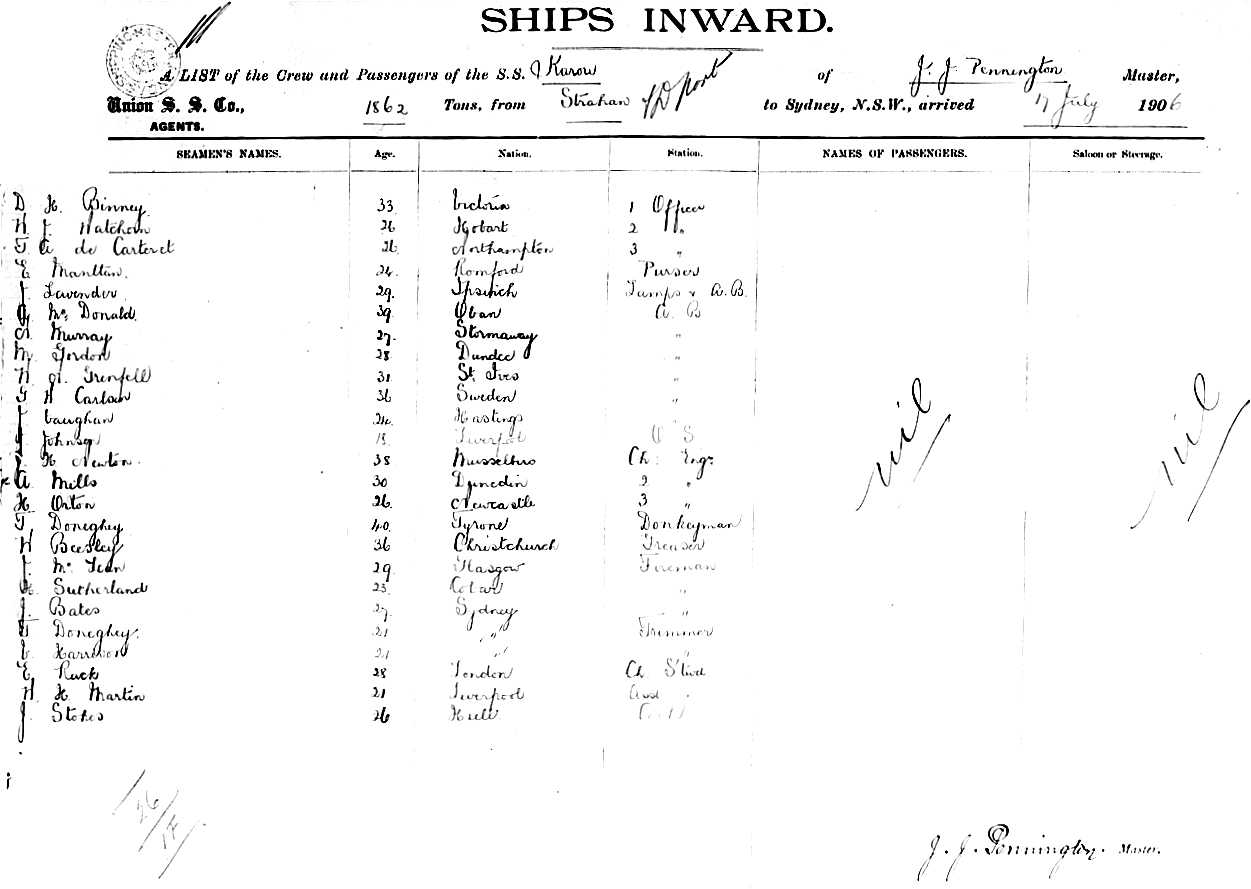 SHIPS INWARD.
A LIST of the Crew and Passengers of the S.S. Karori of J. J. Pennington Master,
Union S. S. Co., 1862 Tons, from Strahan to Sydney, N.S.W., arrived 17 July 1906
AGENTS.
SEAMEN'S NAMES. Age. Nation. Station. NAMES OF PASSENGERS. Saloon or Steerage.
D H. Binney. 33 Victoria 1 Officer
H J. 26 Hobart 2 "
G A de Carteret 26 Northampton 3 "
E 24. Romford Purser
J. Lavender 29. Ipswich Lamps & A.B.
G Mc Donald. 39. Oban A. B
A Murray 27. Stornaway "
M. Gordon 28 Dundee "
31 St. Ives "
G H Carlson 36 Sweden "
J Vaughan 24. Hastings
J Johnson 18. Liverpool O S
J. H Newton. 38 Musselburo Ch: Engr
A. Mills 30 Dunedin 2 "
H. Orton 26. Newcastle 3 "
T. Doneghey 40. Tyrone Donkeyman
H Beesley 36 Christchurch Greaser
J. Mc 29. Glasgow Fireman
Sutherland 23. "
J. Bates 27. Sydney "
T Doneghey. 21 " " Trimmer
Harrison 21 " "
E. Ruck 28 London Ch Stwd
H. H Martin 21 Liverpool Asst "
J. Stokes 26 Hull
nil nil
26/17
J. J. Pennington. Master.